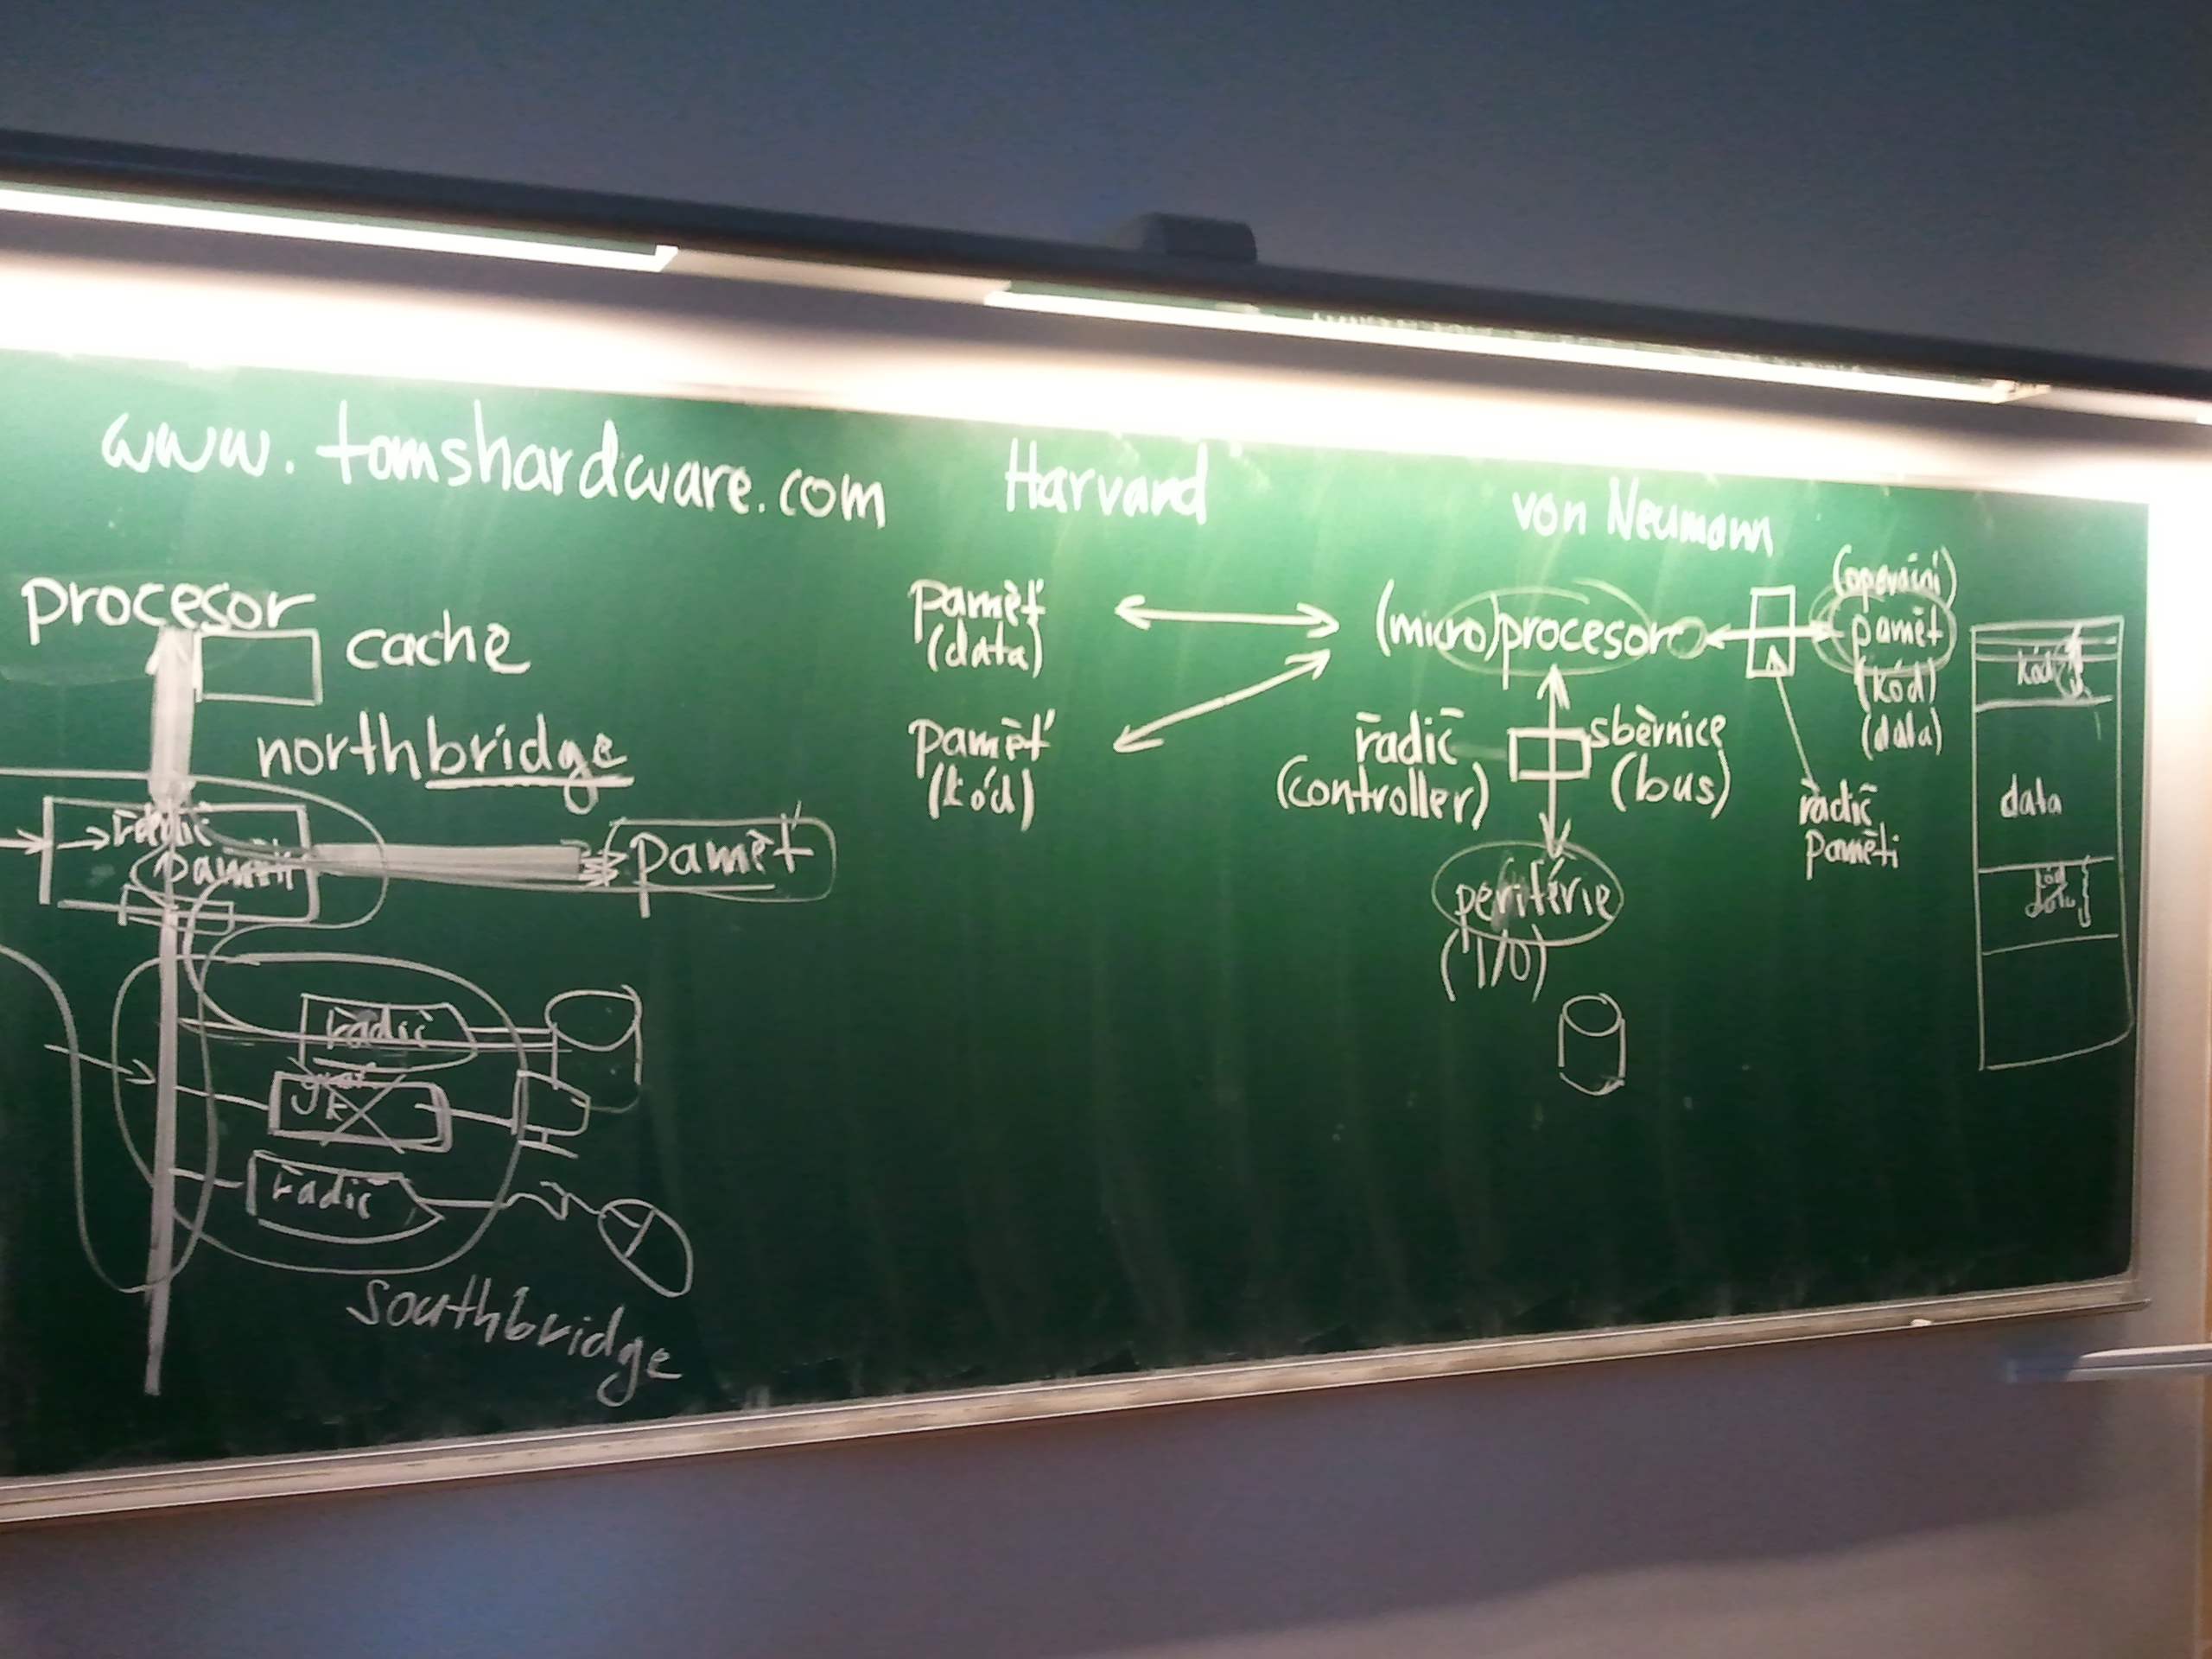 www.tomshardware.com
procesor
cache
northbridge
řadič
paměti
paměť
řadič
řadič
southbridge
Harvard
paměť
(data)
paměť
(kód)
von Neumann
(micro)procesor
řadič
(controller)
sběrnice
(bus)
periférie
(I/O)
(operační)
paměť
(kód)
(data)
řadič
paměti
kód
data
kód
data